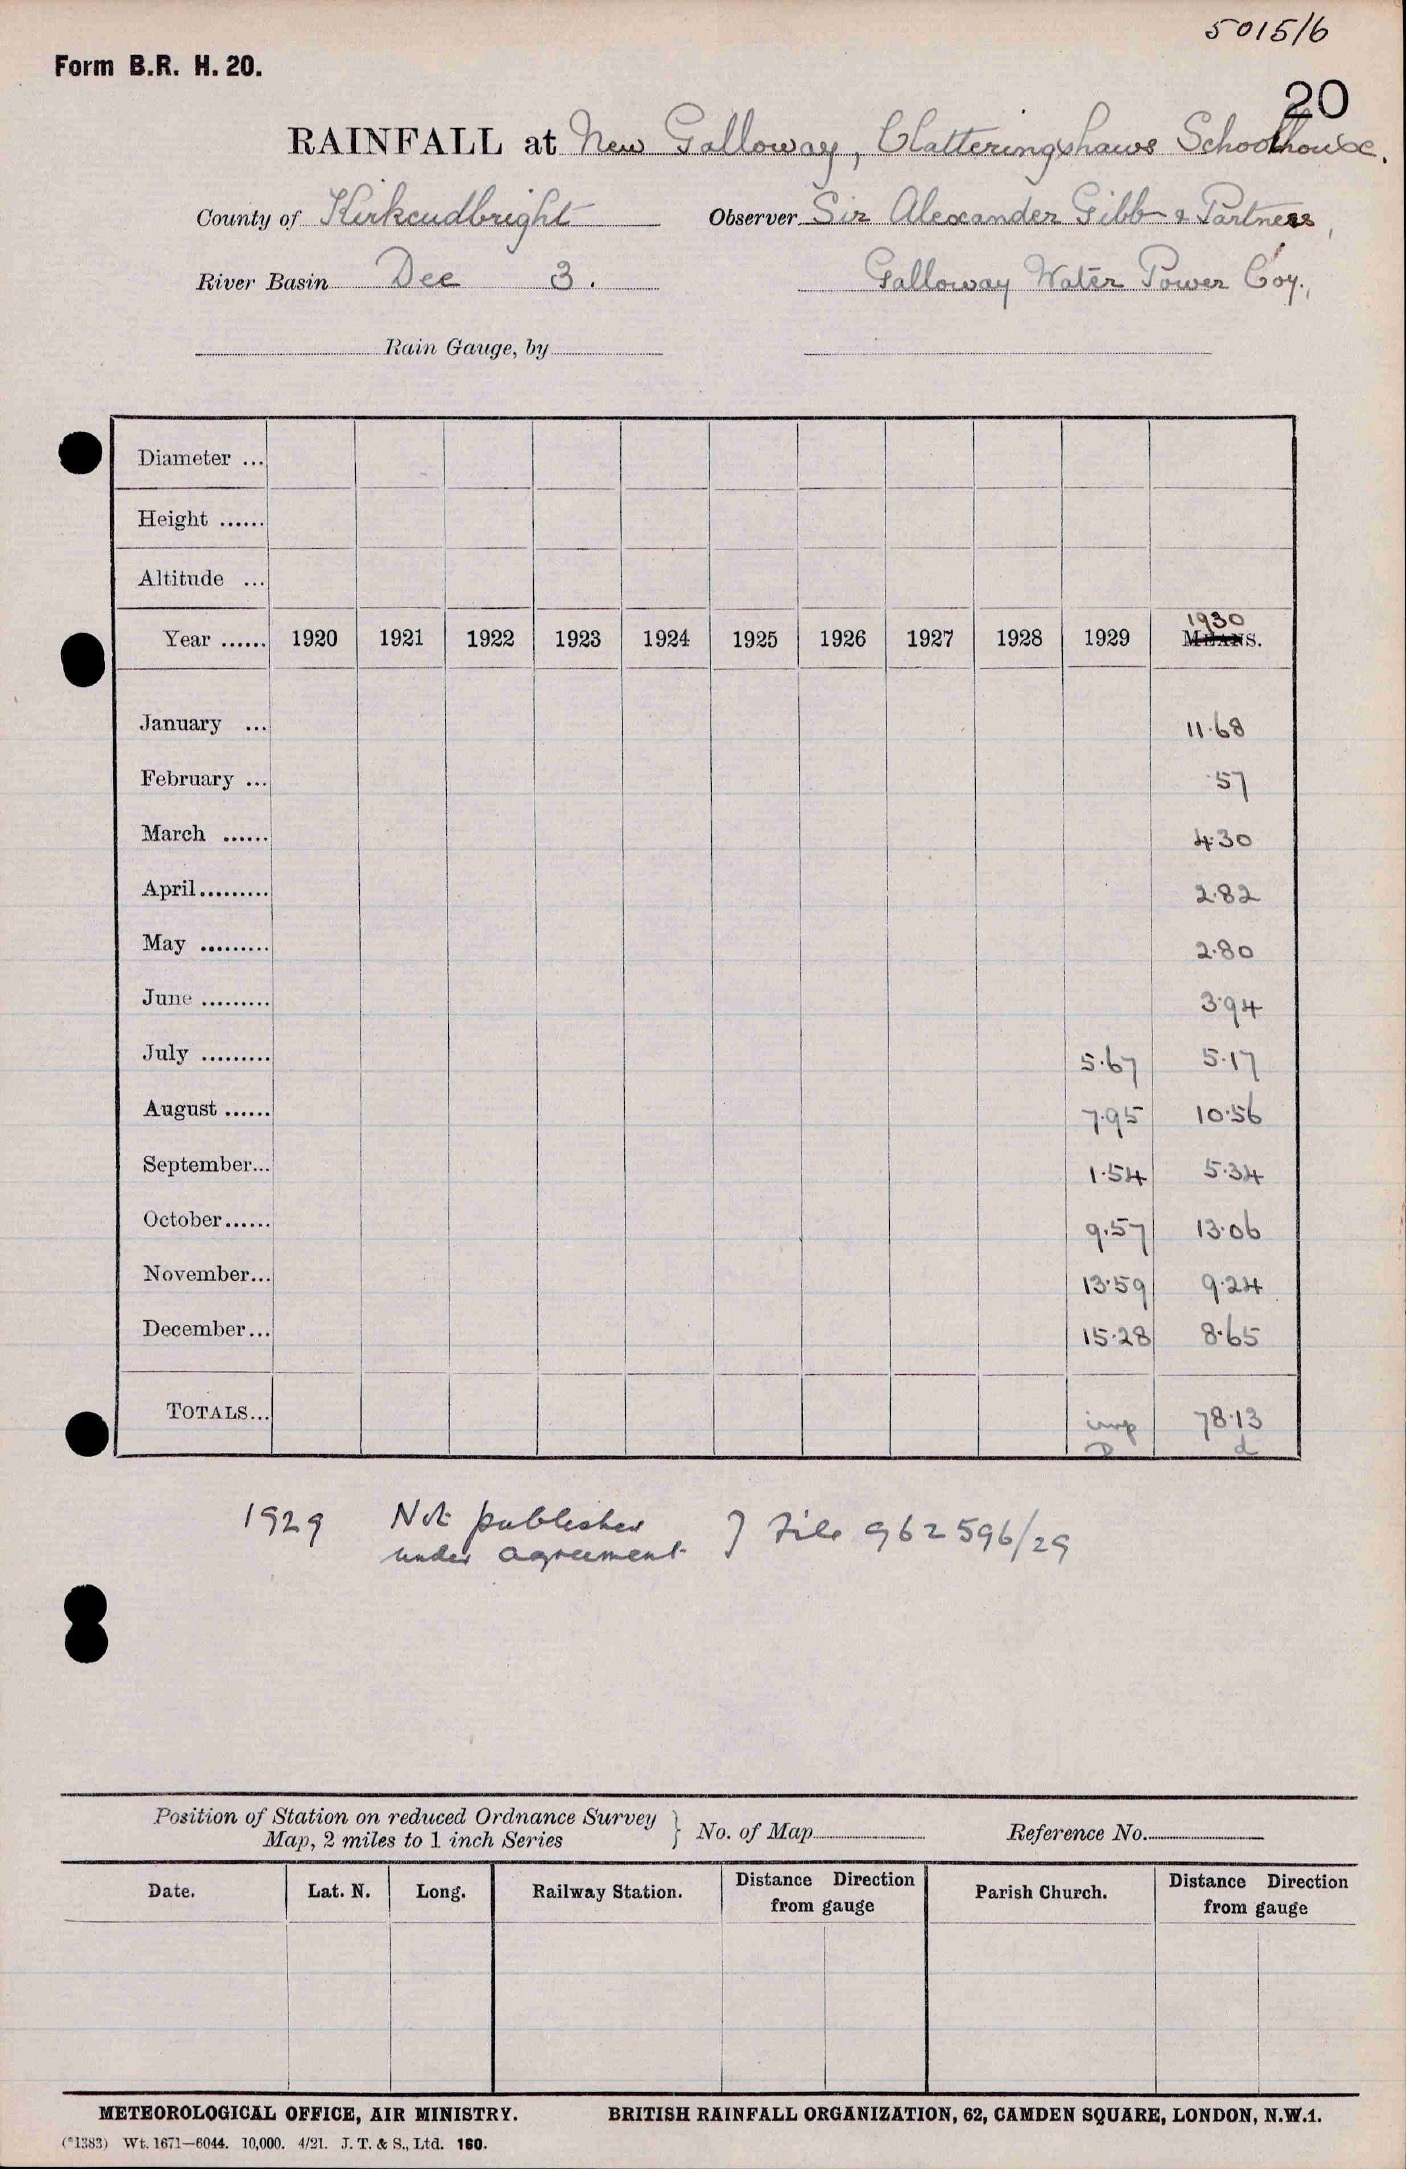 5015/6
Form B.R. H. 20.
20
RAINFALL at New Galloway, Clatteringshaws Schoolhouse.
County of Kirkcudbright Observer Sir Alexander Gibb & Partners,
River Basin Dee 3. Galloway Water Power Coy.,
Rain Gauge, by
Diameter ...
Height ......
Altitude ...
1930
Year ...... 1920 1921 1922 1923 1924 1925 1926 1927 1928 1929 MEANS.
January ... 11.68
February ... .57
March ...... 4.30
April......... 2.82
May ......... 2.80
June ......... 3.94
July ......... 5.67 5.17
August ...... 7.95 10.56
September... 1.54 5.34
October...... 9.57 13.06
November... 13.59 9.24
December... 15.28 8.65
TOTALS... imp 78.13
D d
1929 Not published } File 962596/29
under agreement
Position of Station on reduced Ordnance Survey } No. of Map Reference No.
Map, 2 miles to 1 inch Series
Date. Lat. N. Long. Railway Station. Distance Direction Parish Church. Distance Direction
from gauge from gauge
METEOROLOGICAL OFFICE, AIR MINISTRY. BRITISH RAINFALL ORGANIZATION, 62, CAMDEN SQUARE, LONDON, N.W.1.
(*1383) Wt. 1671—6044. 10,000. 4/21. J. T. & S., Ltd. 160.